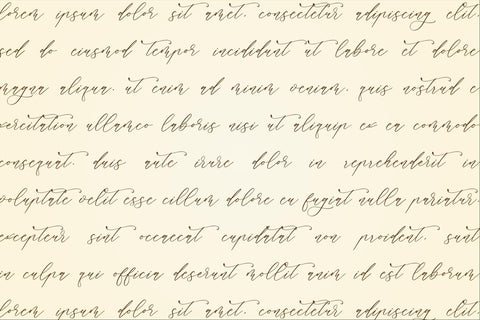 lorem ipsum dolor sit amet. consectetur adipiscing elit.
sed do eiusmod tempor incididunt ut labore et dolore
magna aliqua. ut enim ad minim veniam. quis nostrud e
xercitation ullamco laboris nisi ut aliquip ex ea commodo
consequat. duis aute irure dolor in reprehenderit in
voluptate velit esse cillum dolore eu fugiat nulla pariatur.
excepteur sint occaecat cupidatat non proident. sunt
in culpa qui officia deserunt mollit anim id est laborum
lorem ipsum dolor sit amet. consectetur adipiscing elit.